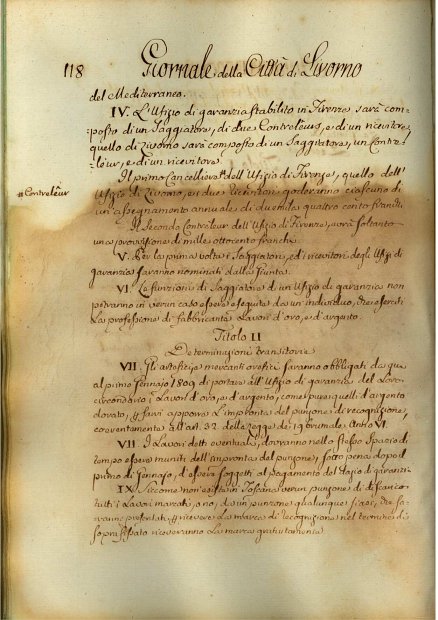 118 Giornale della Città di Livorno
del Mediterraneo.
IV. L'Ufizio di garanzia stabilito in Firenze sarà com-
posto di un Saggiatore, di due Contrelêurs, e di un ricevitore,
quello di Livorno sarà composto di un Saggiatore, un Contre-
lêur, e di un ricevitore.
Il primo Cancelliere# dell'Ufizio di Firenze, quello dell'
# Contrelêur
Ufizio di Livorno, e i due Ricevitori goderanno ciascuno di
un assegnamento annuale di duemila quattro cento franchi.
Il Secondo Contrelêur dell'Ufizio di Firenze, avrà soltanto
una provvisione di mille ottocento franchi.
V. Per la prima volta i Saggiatori, ed i ricevitori degli Ufizi di
garanzia saranno nominati dalla Giunta.
VI. Le funzioni di Saggiatore di un Ufizio di garanzia non
potranno in verun caso essere eseguite da un individuo, che eserciti
la professione di fabbricante Lavori d'oro, e d'argento.
Titolo II
Determinazioni transitorie
VII. Gli artefici, e mercanti orefici saranno obbligati da qua
al primo Gennajo 1809 di portare all'Ufizio di garanzia del Loro
circondario i Lavori d'oro, e d'argento, come pure quelli d'argento
dorato, per farvi apporre l'impronta del punzone di recognizione,
coerentemente all'art. 32. della Legge de' 19 brumale Anno VI.
VII. I Lavori detti eventuali, dovranno nello stesso spazio di
tempo essere muniti dell'impronta del punzone, sotto pena dopo il
primo di Gennajo, d'essere soggetti al pagamento del dazio di garanzia
IX. Siccome non esiste in Toscana verun punzone di discarico
tutti i Lavori marcati, o no, da un punzone qualunque siasi, che sa-
ranno presentati, per ricevere la marca di recognizione nel termine di
sopra fissato riceveranno la marca gratuitamente.